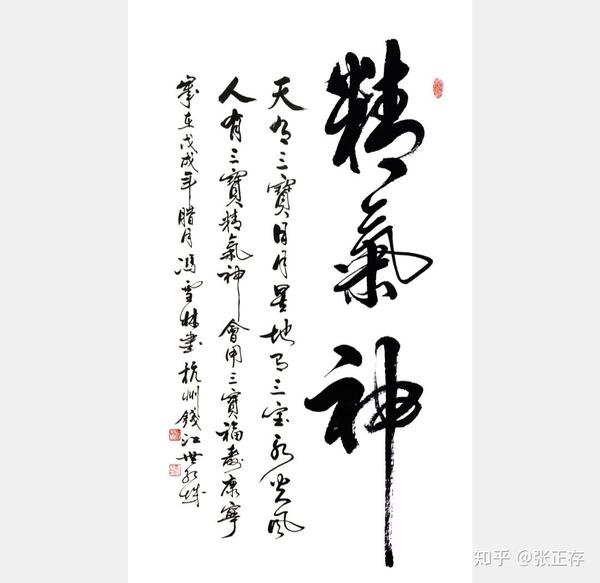 精氣神
天有三寶日月星地有三宝水火風
人有三寶精氣神會用三寶福壽康寧
歲在戊戌年腊月馮雪林書杭州錢江世紀城
知乎 @张正存